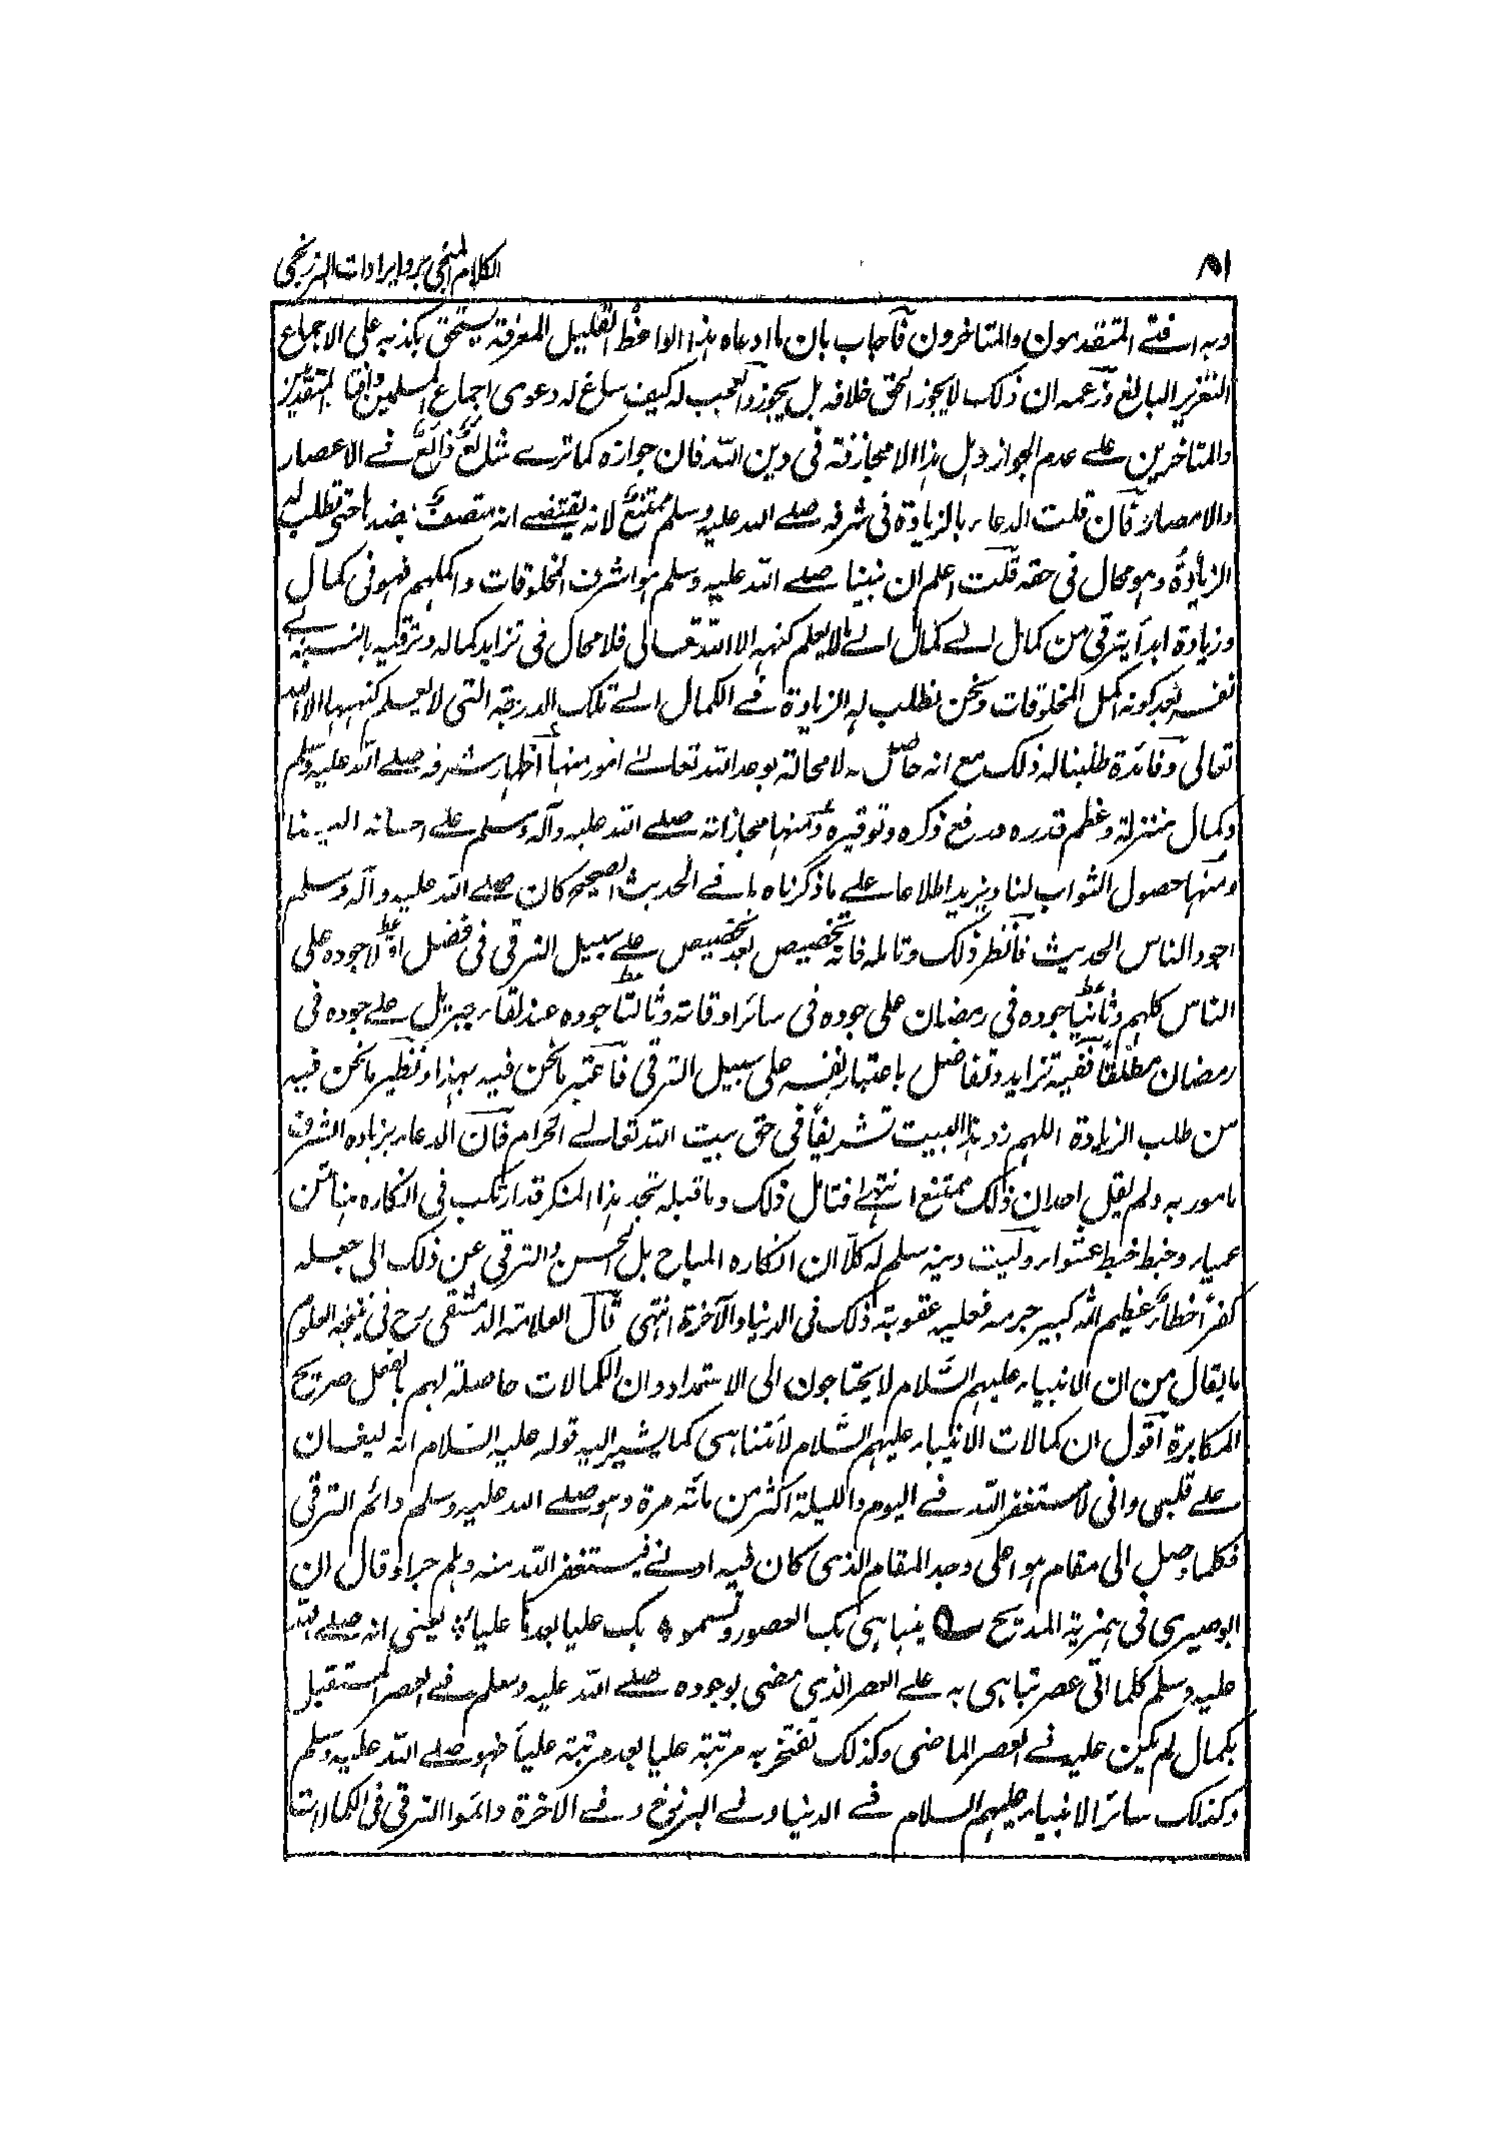 ٥١ الكلام المنجي برد ايرادات البرزنجي
وبه افتى المتقدمون والمتاخرون فاجاب بان ما ادعاه هذا الواعظ القليل المعرفة يستحق بكذبه على الاجماع
التعزير البالغ وزعمه ان ذلك لا يجوز الحق خلافه بل يجوز والعجب له كيف ساغ له دعوى اجماع المسلمين وافتاء المتقدمين
والمتاخرين على عدم الجواز وهل هذا الا مجازفة فى دين الله فان جوازه كما ترى شائع ذائع في الاعصار
والامصار فان قلت الدعاء بالزيادة فى شرفه صلى الله عليه وسلم ممتنع لانه يقتضى انه متصف بضدها حتى تطلب له
الزيادة وهو محال فى حقه قلت اعلم ان نبينا صلى الله عليه وسلم هو اشرف المخلوقات واكملهم فهو فى كمال
وزيادة ابداً يترقى من كمال الى كمال الى ما لا يعلم كنهه الا الله تعالى فلا محال فى تزايد كماله وترقيه بالنسبة الى
نفسه بعد كونه اكمل المخلوقات ونحن نطلب له الزيادة في الكمال الى تلك الدرجة التى لا يعلم كنهها الا الله
تعالى وفائدة طلبنا له ذلك مع انه حاصل له لا محالة بوعد الله تعالى امور منها اظهار شرفه صلى الله عليه وسلم
وكمال منزلته وعظم قدره ورفع ذكره وتوقيره ومنها مجازاته صلى الله عليه وآله وسلم على احسانه الينا
ومنها حصول الثواب لنا ويزيد اطلاعا على ما ذكرناه ما في الحديث الصحيح كان صلى الله عليه وآله وسلم
اجود الناس الحديث فانظر ذلك وتامله فانه تخصيص بعد تخصيص على سبيل الترقى فى فضل اولا جوده على
الناس كلهم وثانيا جوده فى رمضان على جوده فى سائر اوقاته وثالثا جوده عند لقاء جبريل على جوده فى
رمضان مطلقا ففيه تزايد وتفاضل باعتبار نفسه على سبيل الترقى فاعتبر ما نحن فيه بهذا ونظير ما نحن فيه
من طلب الزيادة اللهم زد هذا البيت تشريفاً فى حق بيت الله تعالى الحرام فان الدعاء بزيادة الشرف
مامور به ولم يقل احد ان ذلك ممتنع انتهى فتامل ذلك وما قبله تجد هذا المنكر قد ارتكب فى انكاره هذا متن
عمياء وخبط خبط عشواء وليت دينه سلم له كلا ان انكاره المباح بل الحسن والترقى عن ذلك الى جعله
كفراً خطأ عظيم اثمه كبير جرمه فعليه عقوبة ذلك فى الدنيا والآخرة انتهى قال العلامة الدمشقى رح فى نتيجة العلوم
ما يقال من ان الانبياء عليهم السلام لا يحتاجون الى الاستمداد وان الكمالات حاصلة لهم بالفعل صريح
المكابرة اقول ان كمالات الانبياء عليهم السلام لا تتناهى كما يشير اليه قوله عليه السلام انه ليغان
على قلبى وانى لاستغفر الله في اليوم والليلة اكثر من مائة مرة وهو صلى الله عليه وسلم دائم الترقى
فكلما وصل الى مقام هو اعلى وجد المقام الذى كان فيه ادنى فيستغفر الله منه وهلم جراً وقال ان
البوصيرى فى همزية المديح ؎ يتباهى بك العصور وتسمو ۞ بك عليا بعدها علياء ۞ يعنى انه صلى الله
عليه وسلم كلما اتى عصر تباهى به على العصر الذى مضى بوجوده صلى الله عليه وسلم في العصر المستقبل
بكمال لم يكن عليه في العصر الماضى وكذلك تفتخر به مرتبة عليا بعد مرتبة عليا فهو صلى الله عليه وسلم
وكذلك سائر الانبياء عليهم السلام في الدنيا وفي البرزخ وفي الاخرة دائموا الترقى فى الكمالات